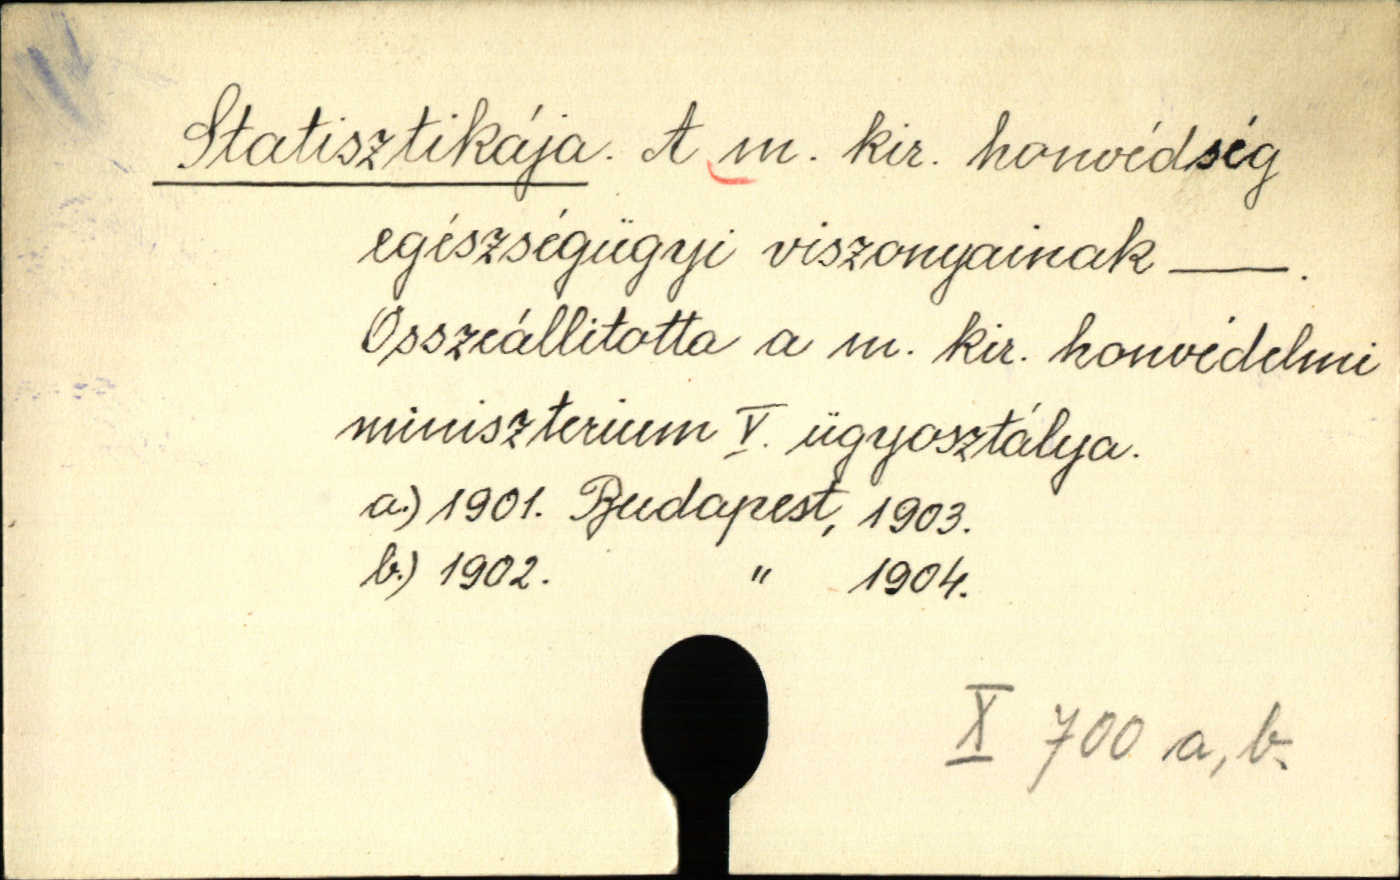 Statisztikája. A m. kir. honvédség
egészségügyi viszonyainak ——.
Osszeállitotta a m. kir. honvédelmi
miniszterium V. ügyosztálya.
a.) 1901. Budapest, 1903.
b.) 1902. " 1904.
X 700 a, b.